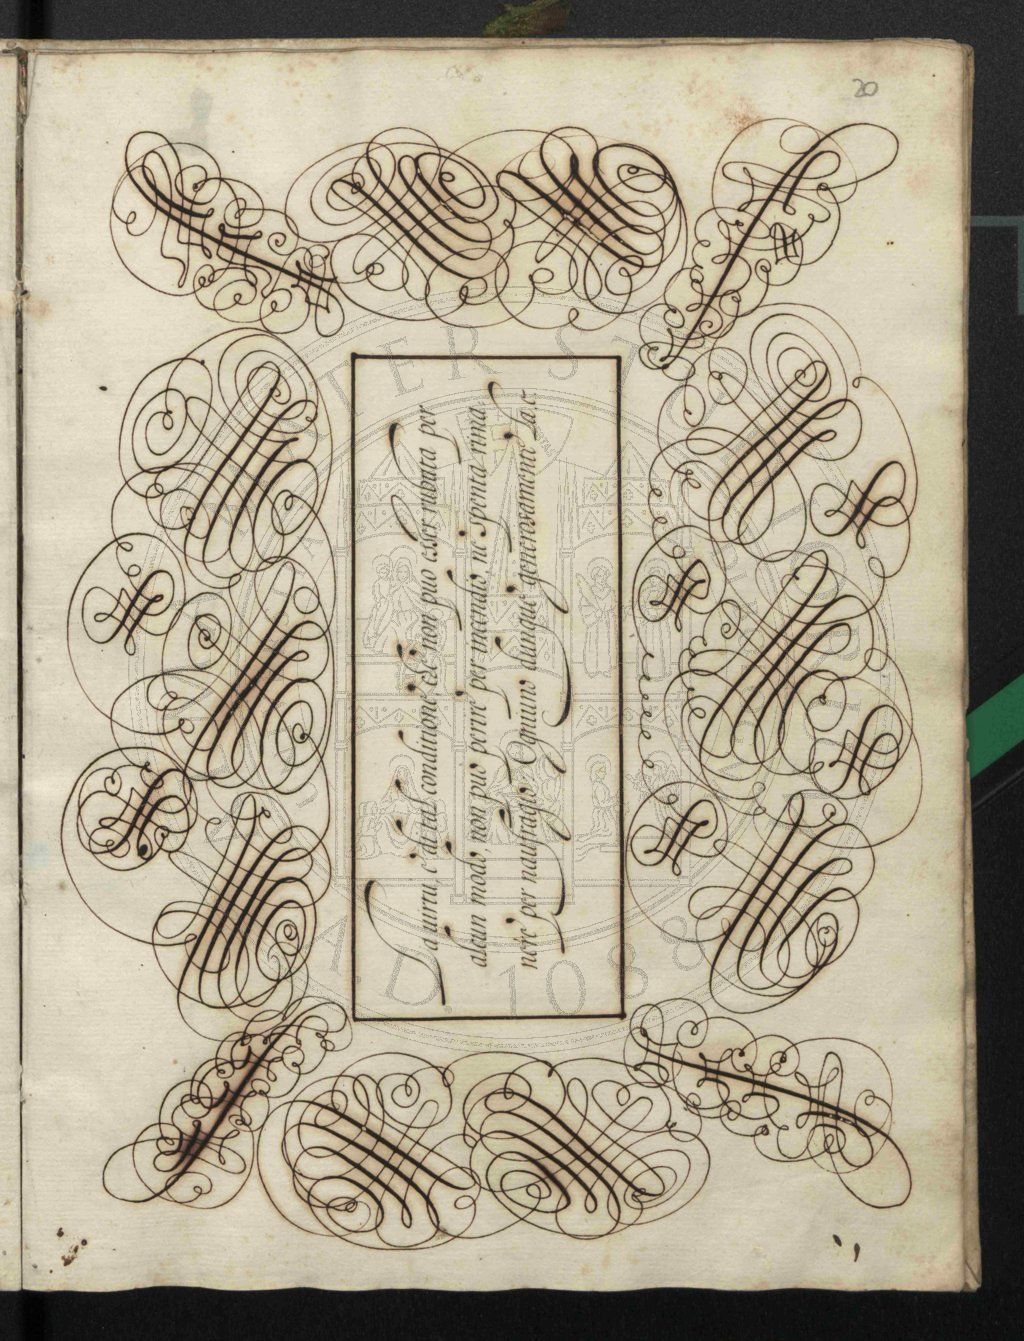 20
La uirtu, e' di tal conditione, che non puo esser rubata per
alcun modo, non puo perire per incendio, ne' spenta rima=
nere per naufragio. Ogniuno dunque generosamente la s=
A.D. 1088